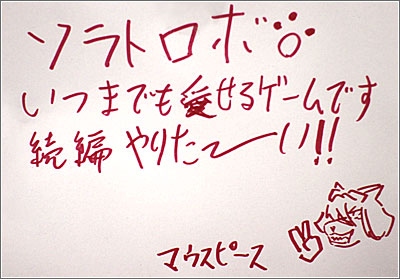 ソラトロボ
いつまでも愛せるゲームです
続編やりたーい!!
マウスピース